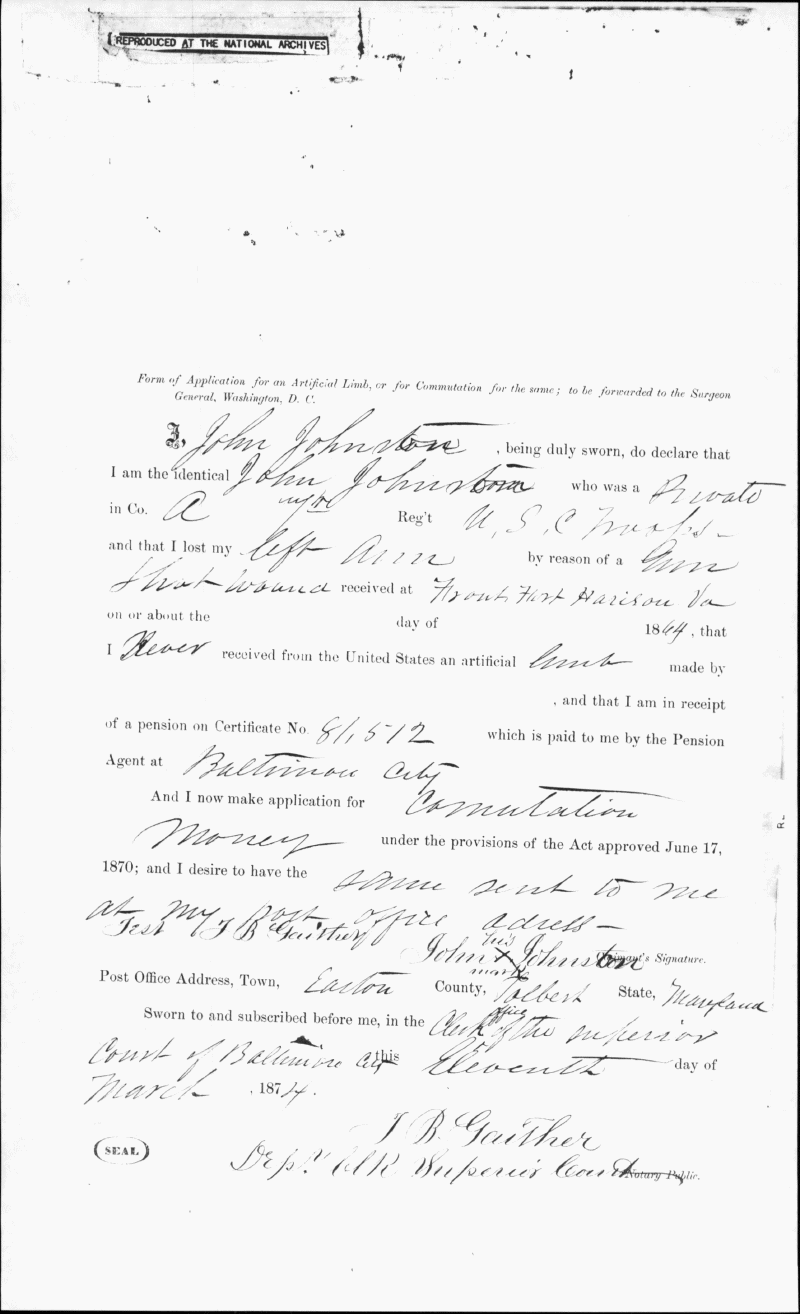 REPRODUCED AT THE NATIONAL ARCHIVES
Form of Application for an Artificial Limb, or for Commutation for the same; to be forwarded to the Surgeon
General, Washington, D. C.
I, John Johnston , being duly sworn, do declare that
I am the identical John Johnston who was a Private
in Co. A Reg't U, S, C Troops -
and that I lost my left Arm by reason of a Gun
Shot wound received at Front Fort Harison Va
on or about the day of 1864, that
I Never received from the United States an artificial Limb made by
, and that I am in receipt
of a pension on Certificate No. 81,512 which is paid to me by the Pension
Agent at Baltimore City
And I now make application for Comutation
Money under the provisions of the Act approved June 17,
1870; and I desire to have the same sent to me
at my post office adress -
Test J B Gaither
his
John x Johnston Claimant's Signature.
mark
Post Office Address, Town, Easton County, Tolbert State, Maryland
office
Sworn to and subscribed before me, in the Clerk of the superior
Court of Baltimore City this Eleventh day of
March , 1874.
J B Gaither
SEAL
Dept. Clk Superior Court Notary Public.
R-